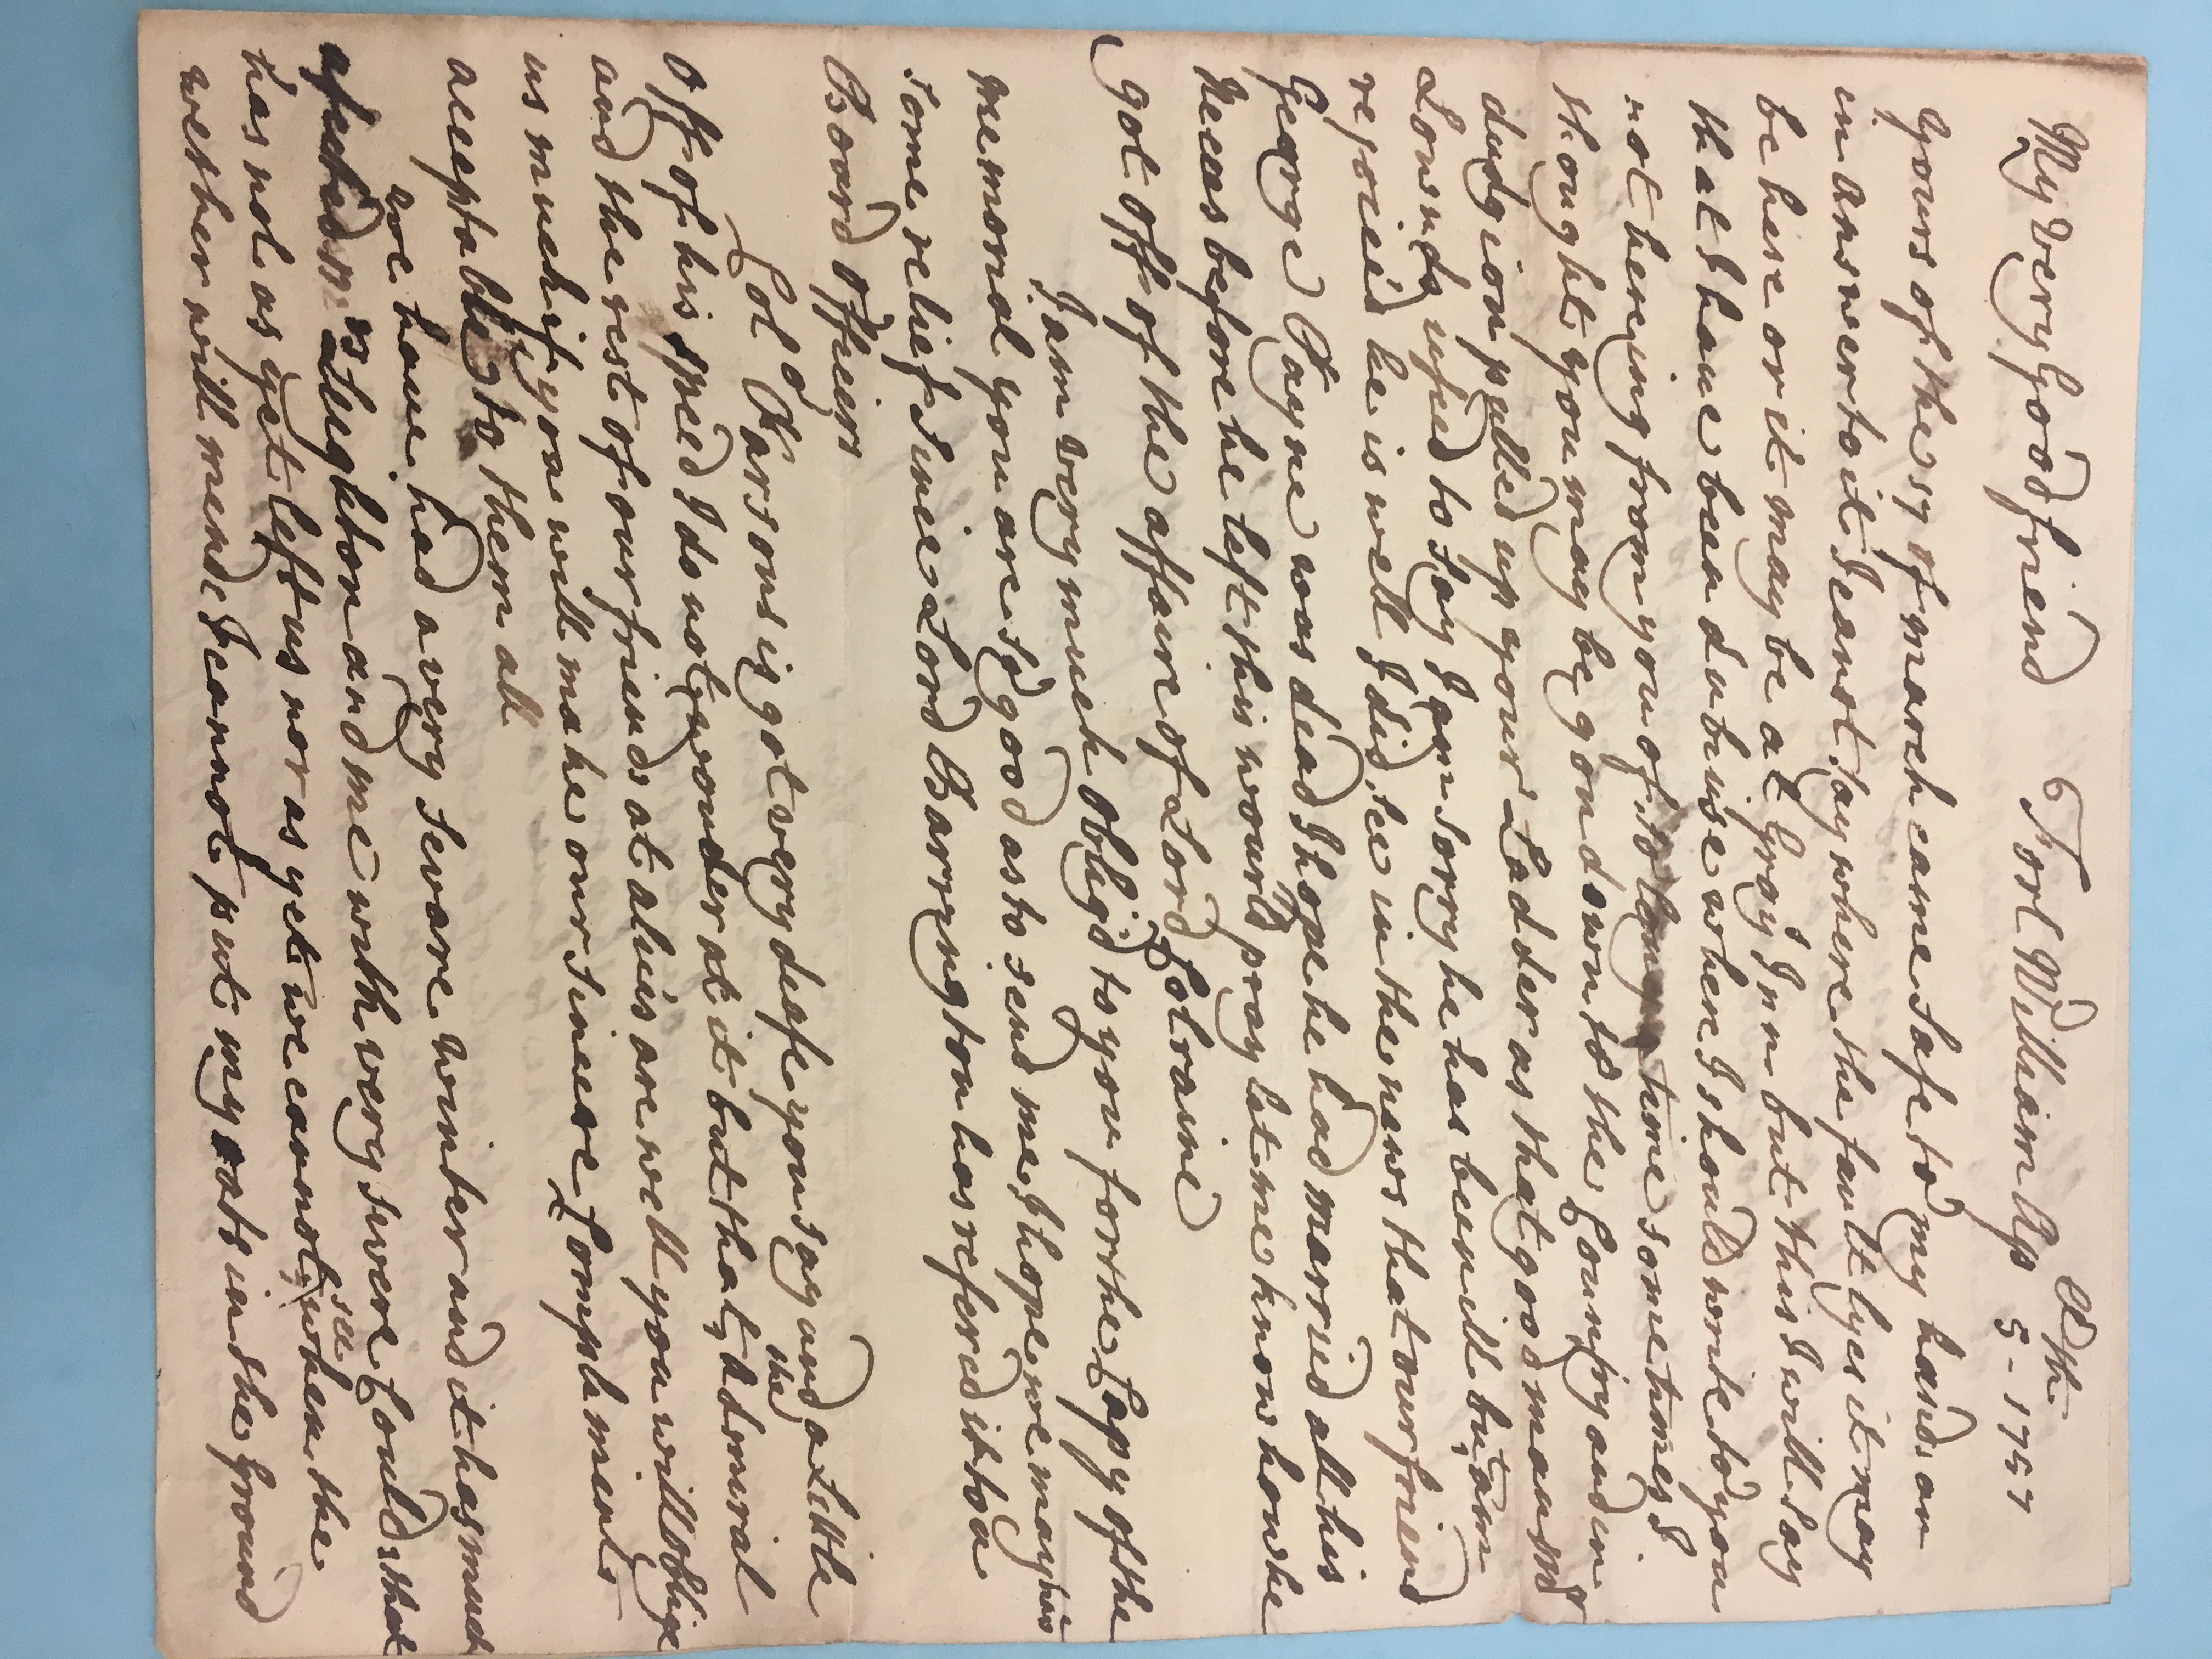 My very Good friend Fort William Ap^ll 5^th - 1757
yours of the 17 of march came safe to my hands an
in answer to it I canot say where the fault lyes it may
be here or it may be at Gray^s Inn but this I will say
that I have been dubiuse where I should write to you
not hereing from you of so long a time some times I
thought you may be gon down to the Country and in
dudgion pulled up your Ladder as that good man M^r
Lownds used to say I am sorry he has been ill but am
rejoiced he is well I did see in the news that our friend
George Payne was dead I hope he had married all his
Neces before he left this wourld pray let me know how he
got off of the affaire of Lord Colraine
I am very much oblig'd to you for the Capy of the
memorial you are so good as to send me I hope we may have
some relief since Lord Barrington has refered it to a
Board Officers
Col^o Parsons is got very deafe you say and a Little
off of his speed I do not wonder at it but that the Admiral
and the rest of our friends at alices are well you will oblige
us much if you will make our sinceere Complements
acceptable to them all
we have had a very sevare winter and it has much
afected M^rs Leighton and me with very severe Coulds that
has not as yet left us nor as yet we cannot see when the
wether will mende I cannot put my oats in the Ground